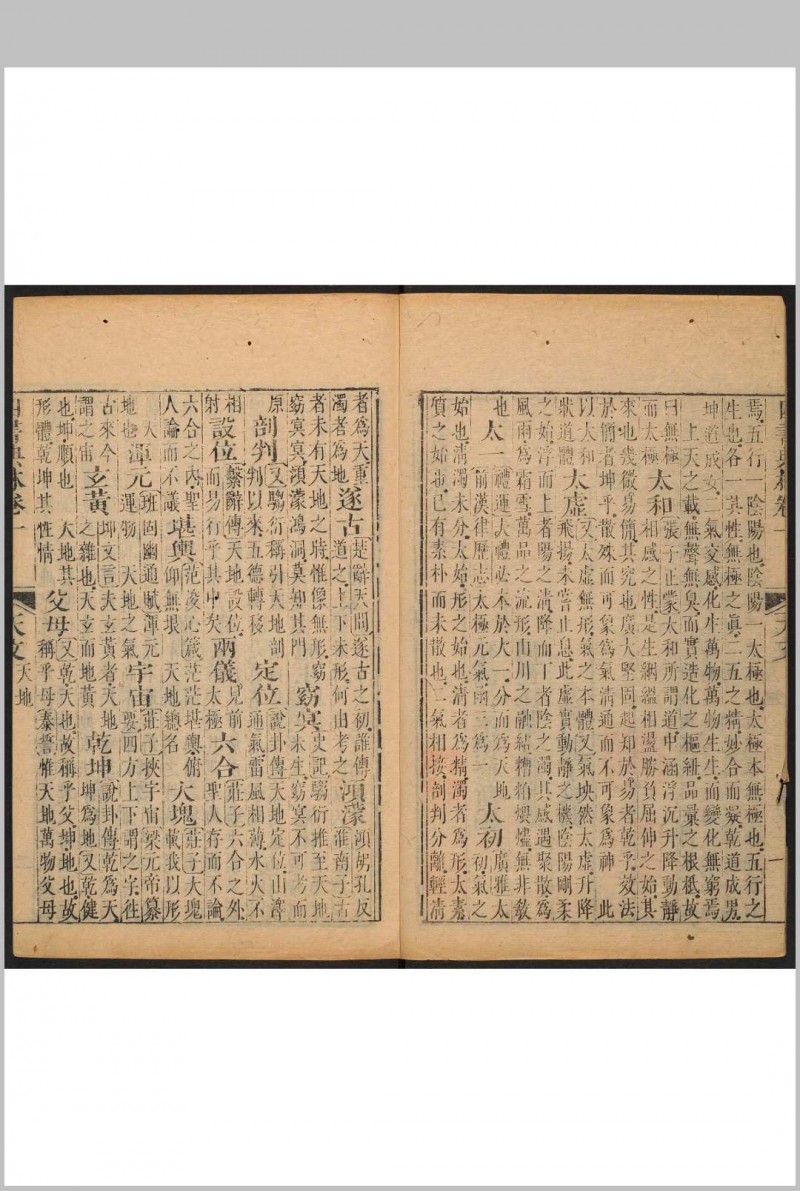 焉五行一陰陽也陰陽一太極也太極本無極也五行之
生也各一其性無極之眞二五之精妙合而凝乾道成男
坤道成女二氣交感化生萬物萬物生生而變化無窮焉
上天之載無聲無臭而實造化之樞紐品彙之根柢故
曰無極
而太極 太和 張子正蒙太和所謂道中涵浮沉升降動靜
相感之性是生絪縕相盪勝負屈伸之始其
來也幾微易簡其究也廣大堅固起知於易者乾乎效法
於簡者坤乎散殊而可象為氣清通而不可象為神 此
以太和
狀道體 太虛 又太虛無形氣之本體又氣坱然太虛升降
飛揚未嘗止息此虛實動靜之機陰陽剛柔
之始浮而上者陽之清降而下者陰之濁其感遇聚散為
風雨為霜雪萬品之流形山川之融結糟粕煨燼無非教
也 太一 禮運夫禮必本於大一分而為天地
前漢律歷志太極元氣函三為一 太初 廣雅太
初氣之
始也清濁未分太始形之始也清者為精濁者為形太素
質之始也已有素朴而未散也二氣相接剖判分離輕清
者為天重
濁者為地 遂古 楚辭天問遂古之初誰傳
道之上下未形何由考之 澒濛 澒胡孔反
淮南子古
者未有天地之時惟像無形窈
窈冥冥澒濛鴻洞莫知其門 窈冥 史記騶衍推至天地
未生窈冥不可考而
原 剖判 又騶衍稱引天地剖
判以來五德轉移 定位 說卦傳天地定位山澤
通氣雷風相薄水火不
相
射 設位 繫辭傳天地設位
而易行乎其中矣 兩儀 見前
太極 六合 莊子六合之外
聖人存而不論
六合之內聖
人論而不議 堪輿 范浚心箴茫茫堪輿俯
仰無垠 天地總名 大塊 莊子大塊
載我以形
大
地也 渾元 班固幽通賦渾元
運物 天地之氣 宇宙 莊子挾宇宙梁元帝纂
要四方上下謂之宇徃
古來今
謂之宙 玄黃 坤文言夫玄黃者天地
之雜也天玄而地黃 乾坤 說卦傳乾為天
坤為地又乾健
也坤順也 天地其
形體乾坤其性情 父母 又乾天也故稱乎父坤地也故
稱乎母泰誓惟天地萬物父母
四書典林卷一 天文 天地
四書典林卷一 天文 一